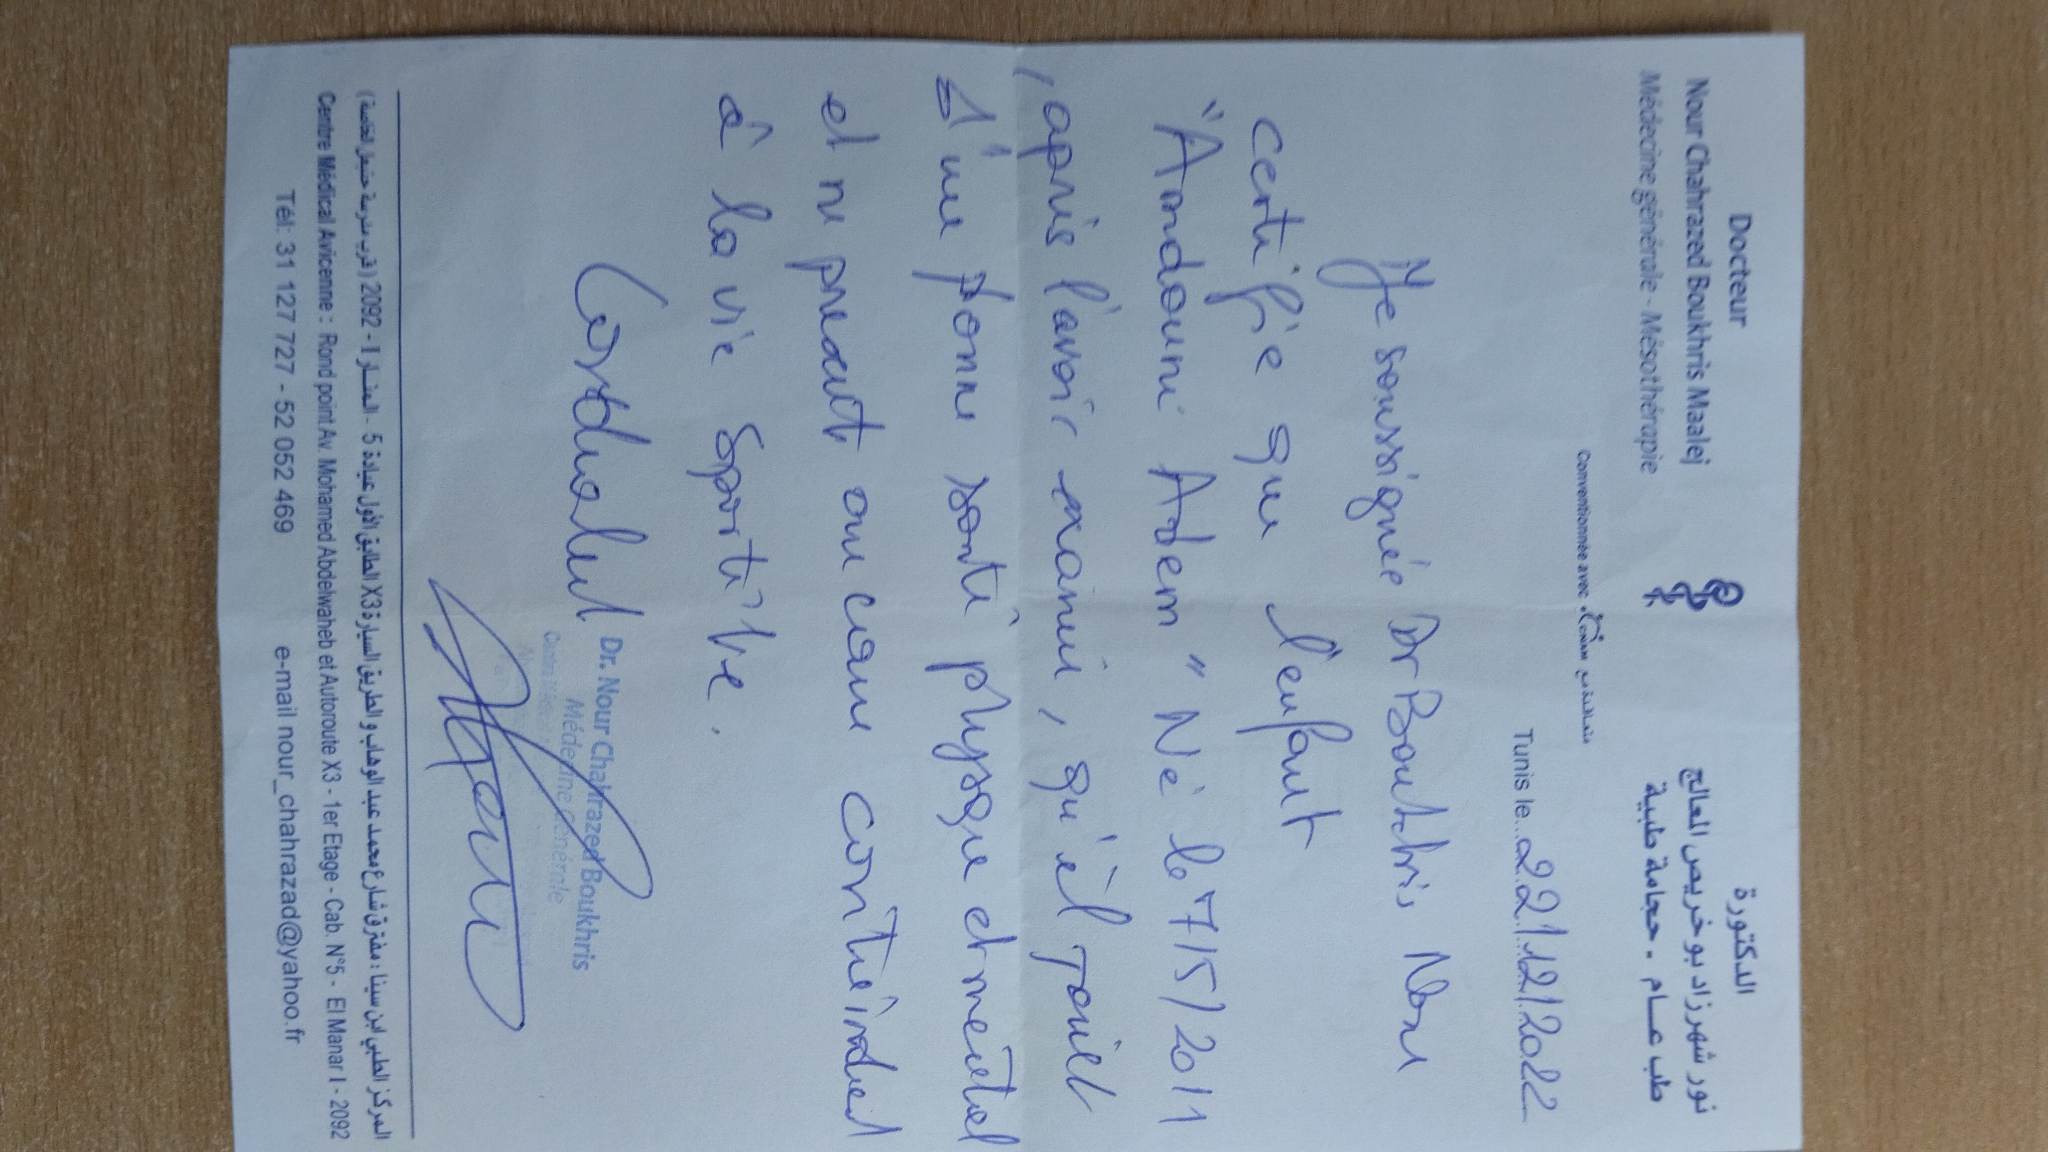 Docteur
Nour Chahrazed Boukhris Maalej
Médecine générale - Mésothérapie
الدكتورة
نور شهرزاد بوخريص المعالج
طب عـــام - حجامة طبية
Conventionnée avec
Tunis le...22/12/2022
Je soussignée Dr Boukhris Nour
certifie que l'enfant
"Amdouni Adem" Né le 7/5/2011
, après l'avoir examiné, qu'il jouit
d'une bonne santé physique et mentale
et ne présente aucune contre indica
à la vie sportive.
Cordialement
Dr. Nour Chahrazed Boukhris
Médecine Générale
المركز الطبي ابن سينا : مفترق شارع محمد عبد الوهاب و الطريق السيارة X3 الطابق الأول عيادة 5 - المنـار I - 2092 (قرب مدرسة حنبعل الخاصة)
Centre Médical Avicenne : Rond point Av. Mohamed Abdelwaheb et Autoroute X3 - 1er Etage - Cab. N°5 - El Manar I - 2092
Tél: 31 127 727 - 52 052 469 e-mail nour_chahrazad@yahoo.fr